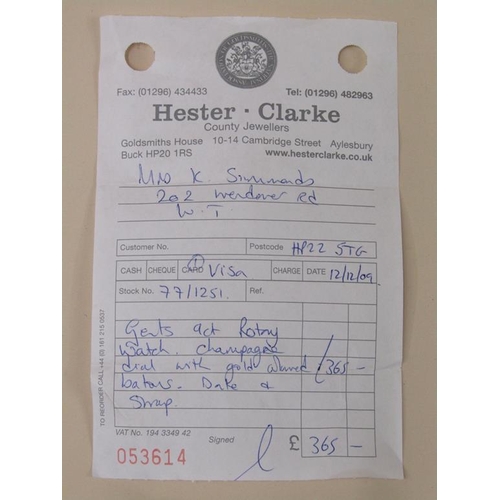 Fax: (01296) 434433 Tel: (01296) 482963
Hester · Clarke
County Jewellers
Goldsmiths House 10-14 Cambridge Street Aylesbury
Buck HP20 1RS www.hesterclarke.co.uk
Mrs K Simmonds
202 Wendover Rd
W.T
Customer No. Postcode HP22 5TG
CASH CHEQUE CARD Visa CHARGE DATE 12/12/09
Stock No. 77/1251. Ref.
Gents 9ct Rotary
Watch. champagne
dial with gold 365 -
batons. Date &
Strap.
VAT No. 194 3349 42
Signed £ 365 -
053614
TO REORDER CALL +44 (0) 161 215 0537